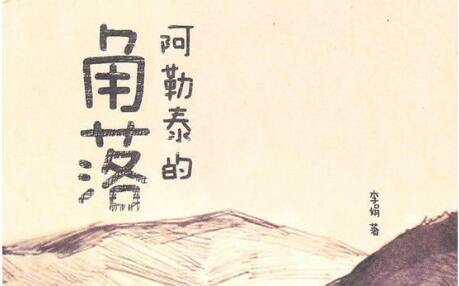 阿勒泰的
角落
李娟 著